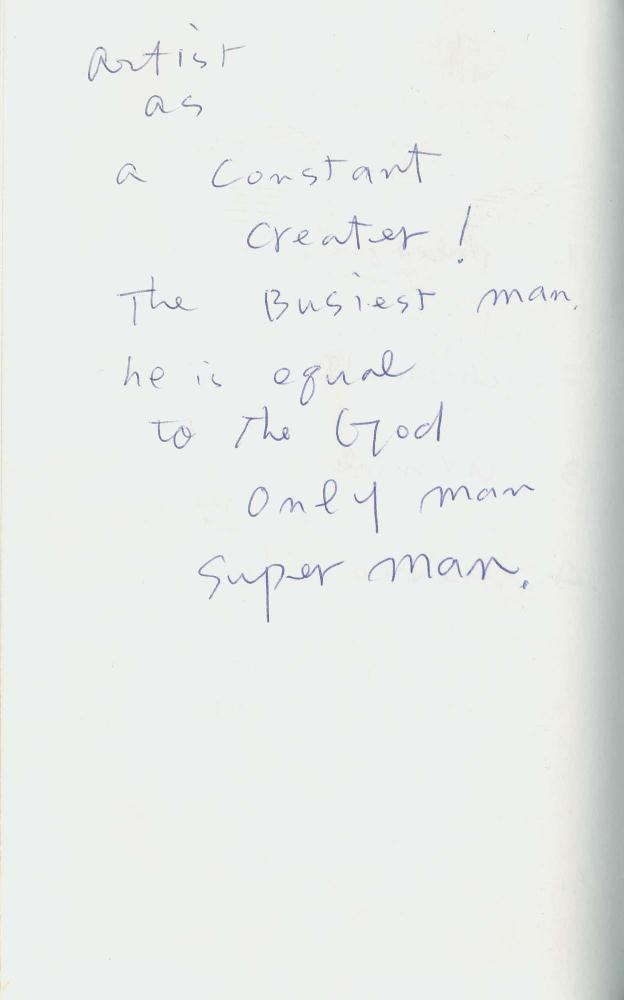 artist
as
a constant
creater!
The Busiest man.
he is equal
to The God
only man
super man.